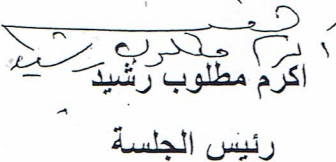 اكرم مطلوب رشيد
اكرم مطلوب رشيد
رئيس الجلسة